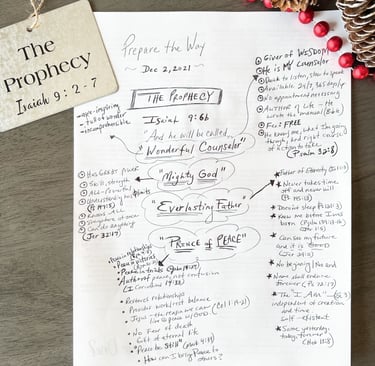 The
Prophecy
Isaiah 9:2-7
Prepare the Way
~ Dec 2, 2021 ~
THE PROPHECY
Isaiah 9:6b
"And he will be called,
"Wonderful Counselor"
- awe-inspiring
- full of wonder
- incomprehensible
Giver of WISDOM
He is MY Counselor
Quick to listen, slow to speak
Available 24/7, 365 days/yr
No appointment necessary
AUTHOR of Life - He
wrote the manual (Bible)
Fees? FREE
He knows me, what I'm going
through, and right course
of action to take
(Psalm 32:8)
"Mighty God"
Has GREAT power
Skill, strength
All-Powerful
Understanding no limits
Knows ALL
Can do anything
(Jer 32:17)
"Everlasting Father"
Father of Eternity
Never takes time
off and never will
Doesn't sleep
Knew me before I was
born
Can see my future
No beginning/No end
Name shall endure
forever (Ps 72:17)
The "I Am"
independent of creation
and time
self-existent
Same yesterday,
today, forever
(Heb 13:8)
"PRINCE of PEACE"
Author of peace, not confusion
(I Corinthians 14:33)
Restores relationships
Provides work/rest balance
Jesus - the reason we can
live in peace w/ GOD (Col 1:19-2)
No fear of death
Gift of eternal life
"Peace be Still" (Mark 4:39)
How can I bring Peace to
others?